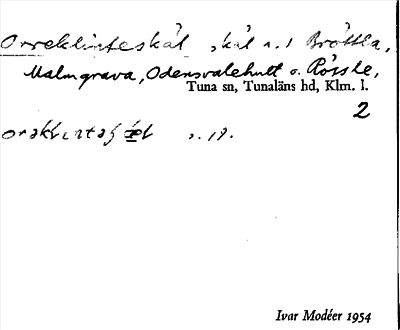 Orreklinteskäl, skäl n. i Bröttla,
Malmgrava, Odensvalehult o. Rössle,
Tuna sn, Tunaläns hd, Klm. l.
2
s. 19.
Ivar Modéer 1954